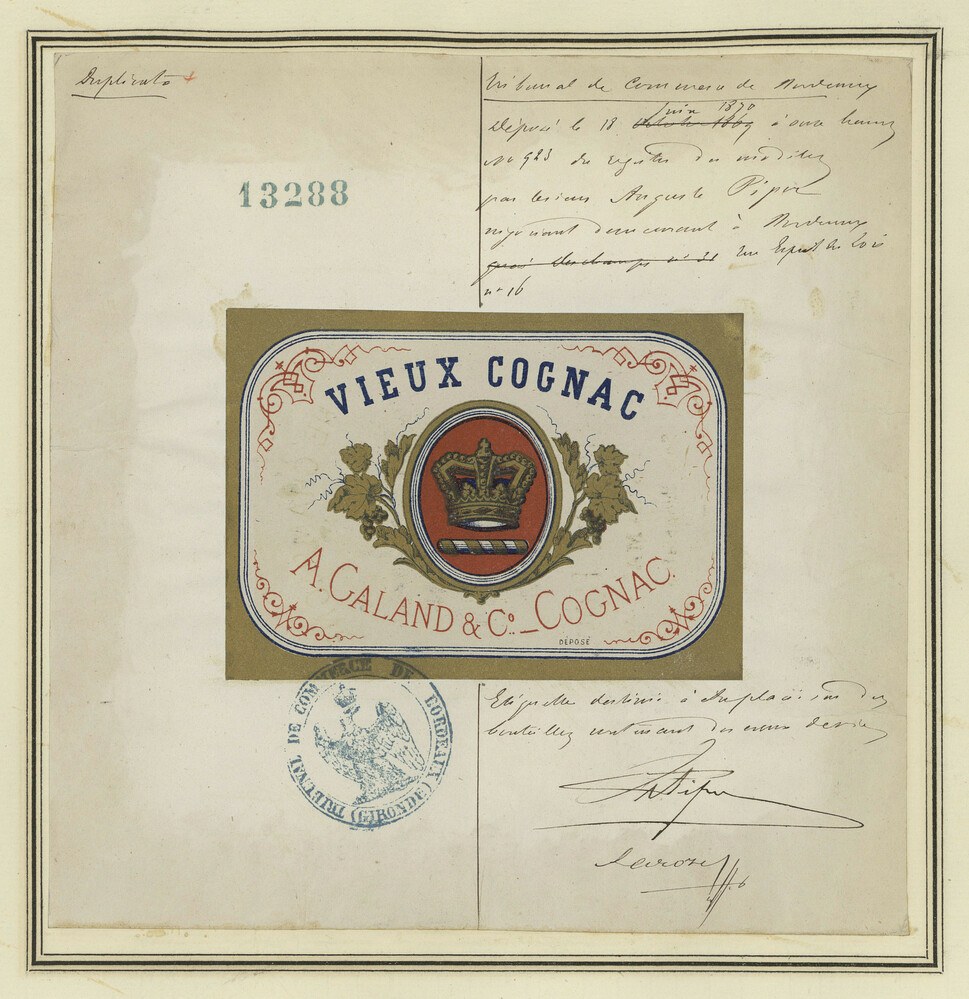 Duplicata
Tribunal de Commerce de Bordeaux
Juin 1870
Déposé le 18 octobre 1869 à onze heures
No 923 du registre des modèles
par le sieur Auguste Piper
négociant demeurant à Bordeaux
rue Esprit des Lois
no 16
13288
VIEUX COGNAC
A. GALAND & Co._COGNAC.
DÉPOSÉ
TRIBUNAL DE COMMERCE DE BORDEAUX (GIRONDE)
Etiquette destinée à être placée sur des
bouteilles contenant des eaux de vie